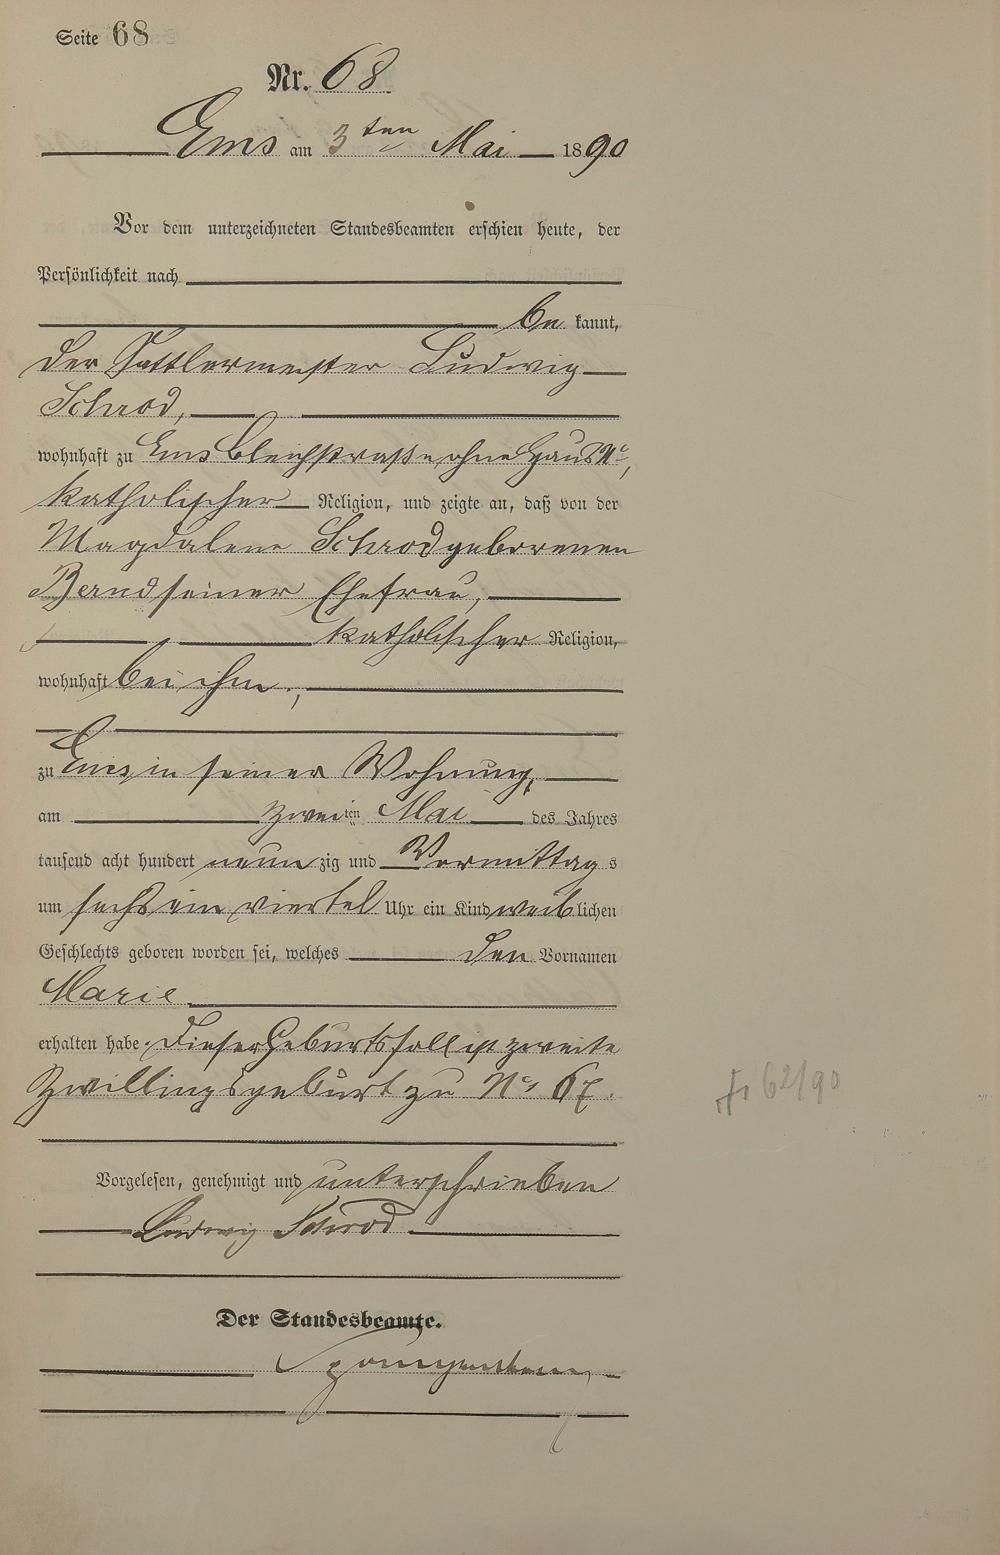 Seite 68
Nr. 68
Ems am 3ten Mai 1890
Vor dem unterzeichneten Standesbeamten erschien heute, der
Persönlichkeit nach
be kannt,
der Sattlermeister Ludwig
Schrod,
wohnhaft zu Ems Bleichstraße ohne Haus No,
katholischer Religion, und zeigte an, daß von der
Magdalene Schrod geborenen
Bernd seiner Ehefrau,
katholischer Religion,
wohnhaft bei ihm,
zu Ems in seiner Wohnung,
am zweiten Mai des Jahres
tausend acht hundert neun zig und Vormittag s
um sechs ein viertel Uhr ein Kind weib lichen
Geschlechts geboren worden sei, welches den Vornamen
Marie
erhalten habe. Dieser Geburtsfall ist zweite
Zwillingsgeburt zu No 67.
Vorgelesen, genehmigt und unterschrieben
Ludwig Schrod
Der Standesbeamte.
62/90